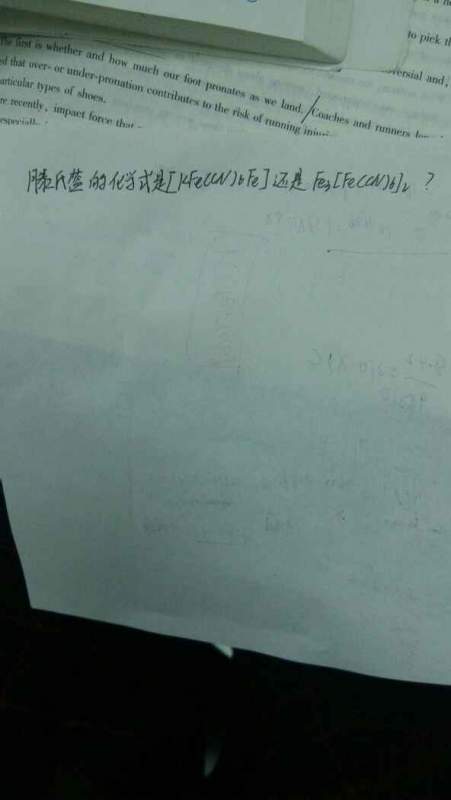 to pick th
The first is whether and how much our foot pronates as we land. Coaches and runners
versial and,
ed that over- or under-pronation contributes to the risk of running
articular types of shoes.
re recently, impact force that
especially
滕氏蓝的化学式是[KFe(CN)6Fe]还是Fe3[Fe(CN)6]2?